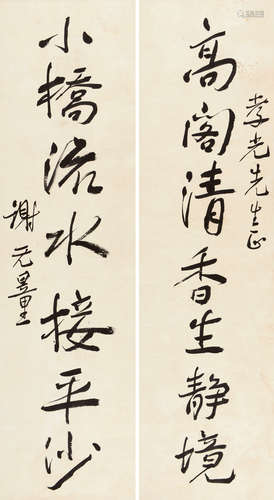 孝光先生正
高阁清香生静境
小橋流水接平沙
谢元量